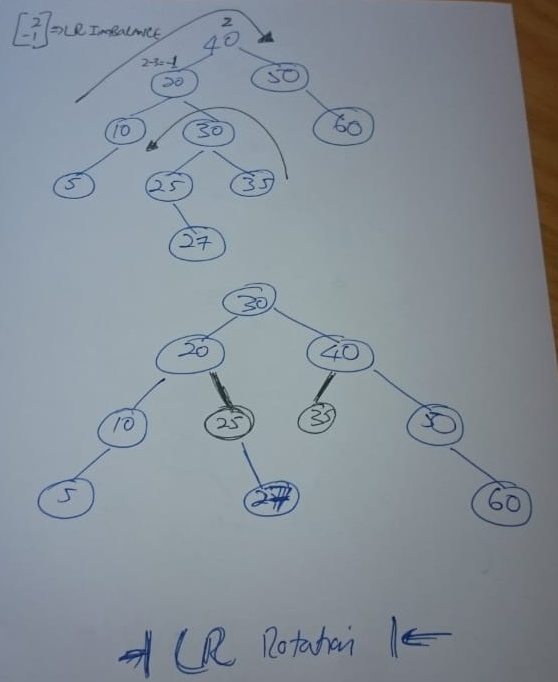 [2 -1] ⇒ LR Imbalance
2
40
2-3=-1
20 50
10 30 60
5 25 35
27
30
20 40
10 25 35 50
5 27 60
LR Rotation